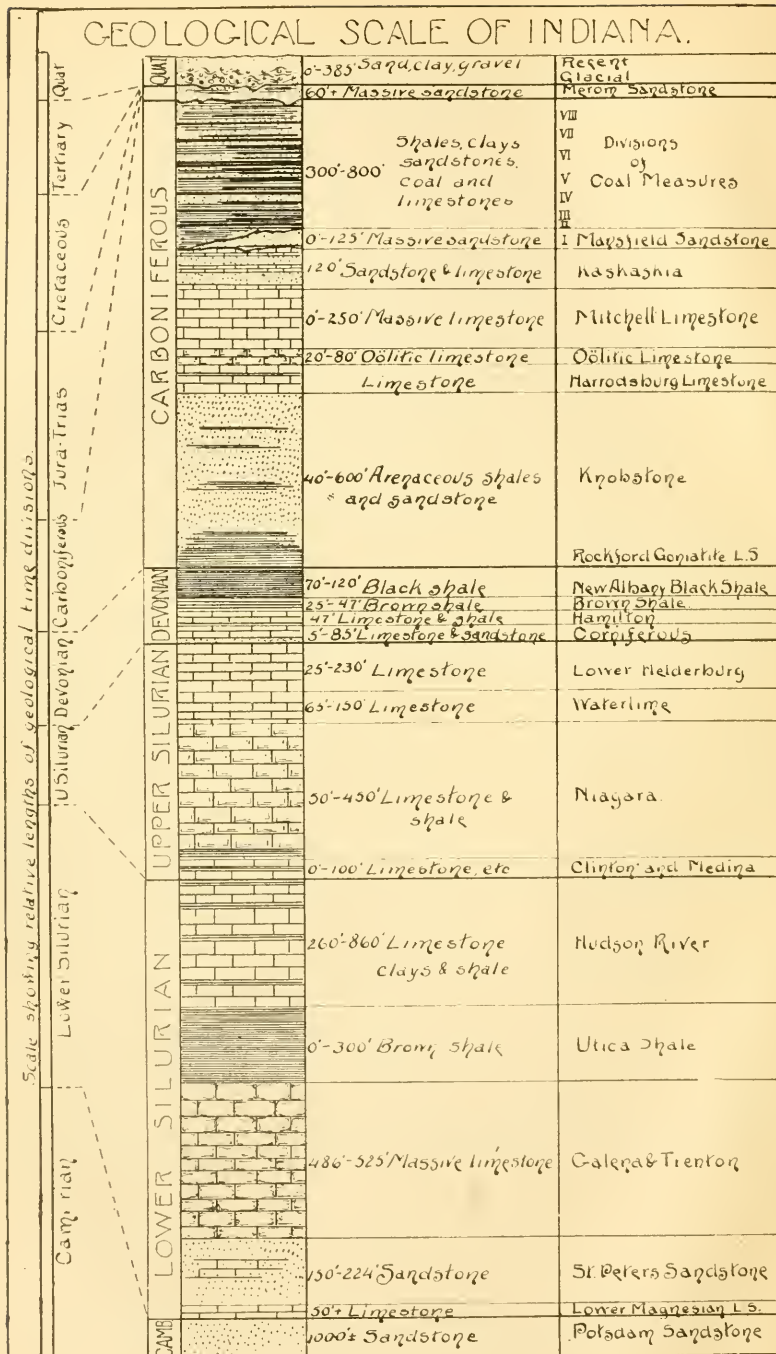 GEOLOGICAL SCALE OF INDIANA.
Scale showing relative lengths of geological time divisions.
Quat
Tertiary
Cretaceous
Jura-Trias
Carboniferous
Devonian
U Silurian
Lower Silurian
QUAT
0'-385' Sand, clay, gravel
Recent
Glacial
60'+ Massive sandstone
Merom Sandstone
CARBONIFEROUS
300'-800'
Shales, clays
sandstones,
coal and
limestones
VIII
VII
VI
V
IV
III
II
Divisions
of
Coal Measures
0'-125' Massive sandstone
I Mansfield Sandstone
120' Sandstone & limestone
Kaskaskia
0'-250' Massive limestone
Mitchell Limestone
20'-80' Oölitic limestone
Oölitic Limestone
Limestone
Harrodsburg Limestone
40'-600' Arenaceous shales
and sandstone
Knobstone
Rockford Goniatite L.S
DEVONIAN
70'-120' Black shale
New Albany Black Shale
25'-47' Brown shale
Brown Shale
47' Limestone & shale
Hamilton
5'-85' Limestone & sandstone
Corniferous
UPPER SILURIAN
25'-230' Limestone
Lower Helderburg
65'-150' Limestone
Waterlime
50'-450' Limestone &
shale
Niagara
0'-100' Limestone, etc
Clinton and Medina
LOWER SILURIAN
260'-860' Limestone
clays & shale
Hudson River
0'-300' Brown shale
Utica Shale
486'-525' Massive limestone
Galena & Trenton
150'-224' Sandstone
St. Peters Sandstone
50'+ Limestone
Lower Magnesian L S.
CAMB
1000'± Sandstone
Potsdam Sandstone